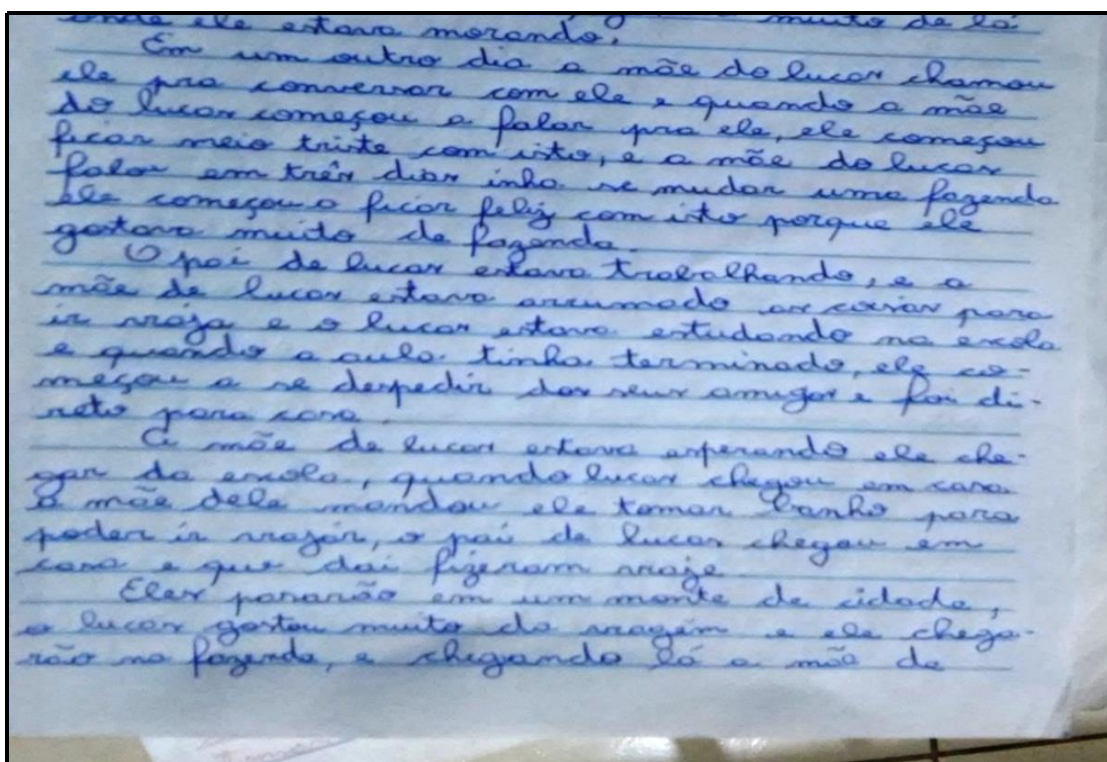 onde ele estava morando, muito de lá
Em um outro dia a mãe do lucas chamou
ele pra conversar com ele e quando a mãe
do lucas começou a falar pra ele, ele começou
ficar meio triste com isto, e a mãe do lucas
falou em três dias inho se mudar uma fazenda
ele começou o ficar feliz com isto porque ele
gostava muito de fazenda.
O pai de lucas estava trabalhando, e a
mãe de lucas estava arrumado as coisas para
ir viaja e o lucas estava estudando na escola
e quando a aula tinha terminado, ele co-
meçou a se despedir dos seus amigos e foi di-
reto para casa.
A mãe de lucas estava esperando ele che-
gar da escola, quando lucas chegou em casa
a mãe dele mandou ele tomar banho para
poder ir viajar, o pai de lucas chegou em
casa e que dai fizeram viaje
Eles pararão em um monte de cidade,
o lucas gostou muito da viagem e ele chega-
rão na fazenda, e chegando lá a mãe de